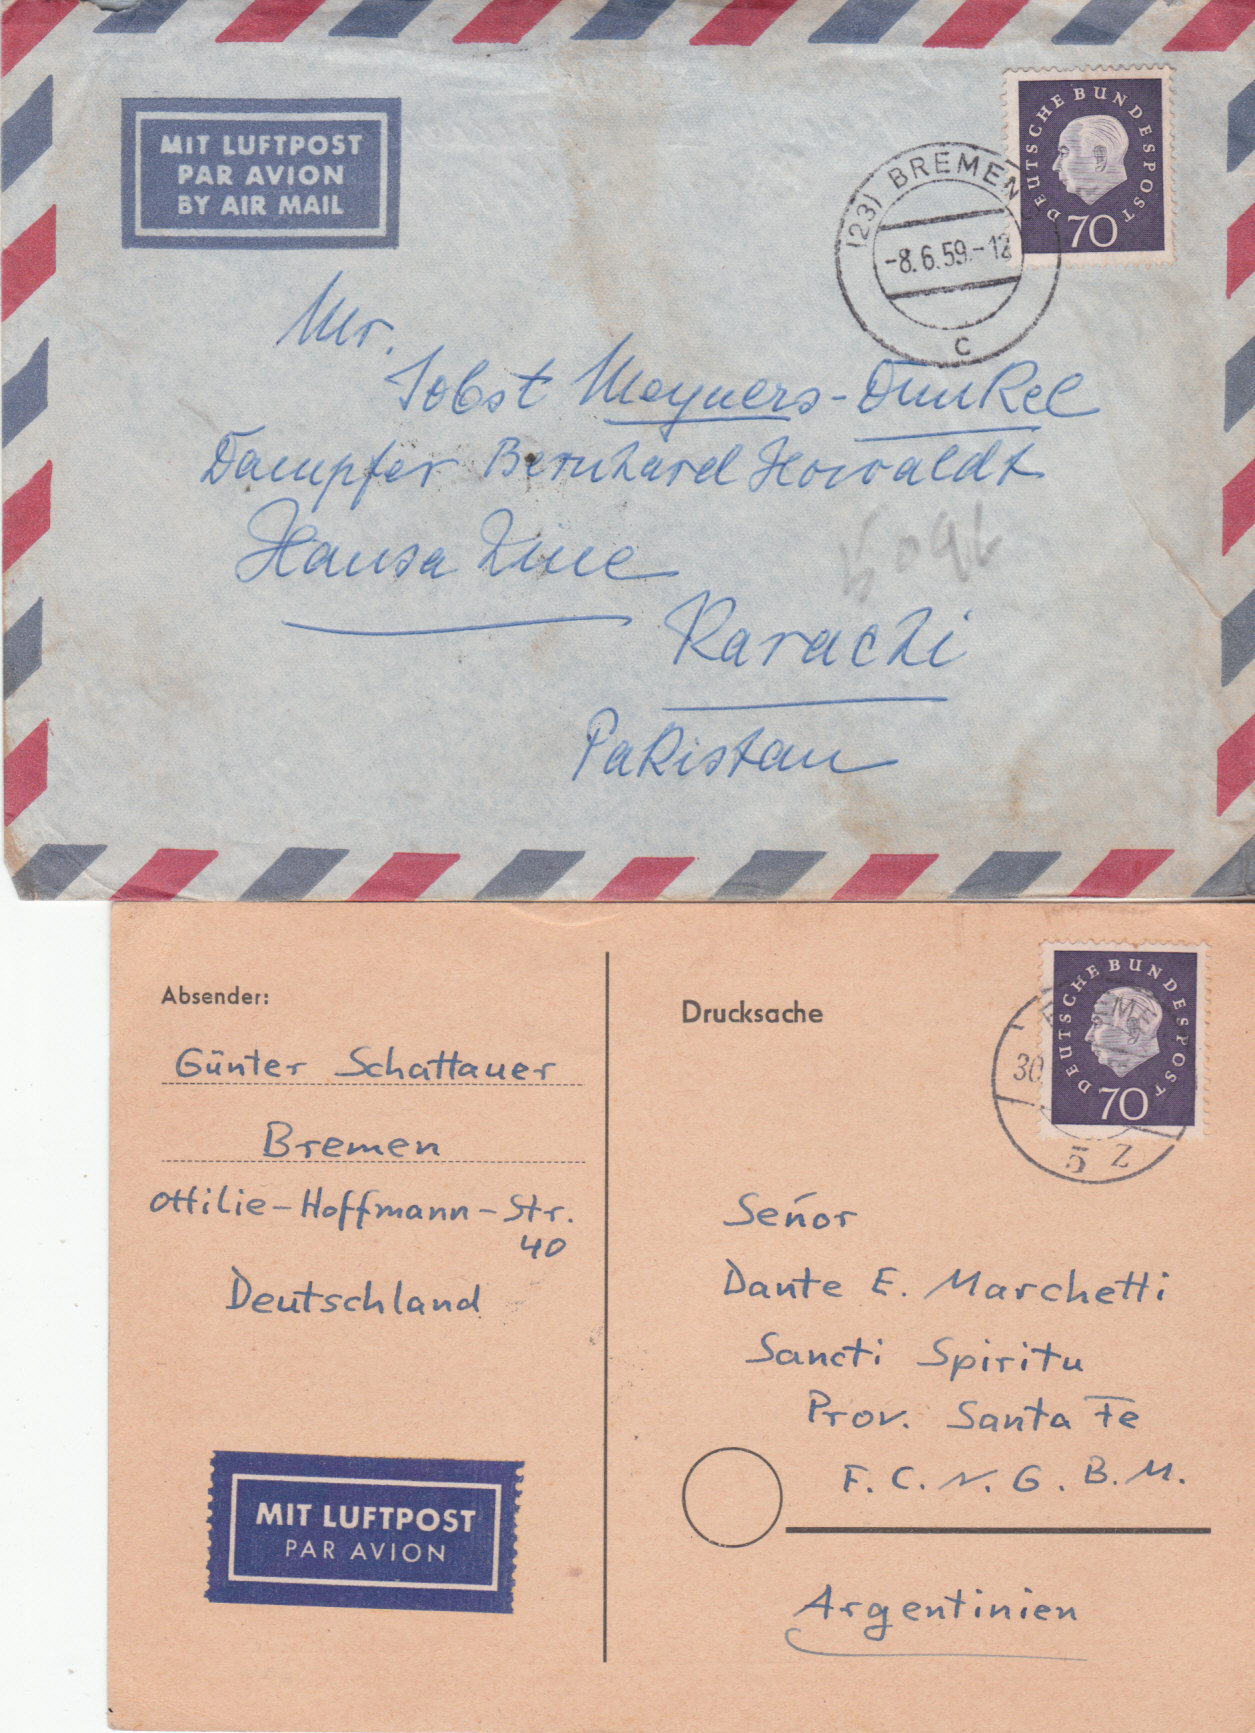 MIT LUFTPOST
PAR AVION
BY AIR MAIL
DEUTSCHE BUNDESPOST
70
(23) BREMEN
-8.6.59.-12
c
Mr.
Jobst Meyners-Dunkel
Dampfer Bernhard Howaldt
Hansa Line
Karachi
Pakistan
Absender:
Günter Schattauer
Bremen
Ottilie-Hoffmann-Str.
40
Deutschland
MIT LUFTPOST
PAR AVION
Drucksache
DEUTSCHE BUNDESPOST
70
BREMEN
30
5 Z
Señor
Dante E. Marchetti
Sancti Spiritu
Prov. Santa Fe
F. C. N. G. B. M.
Argentinien